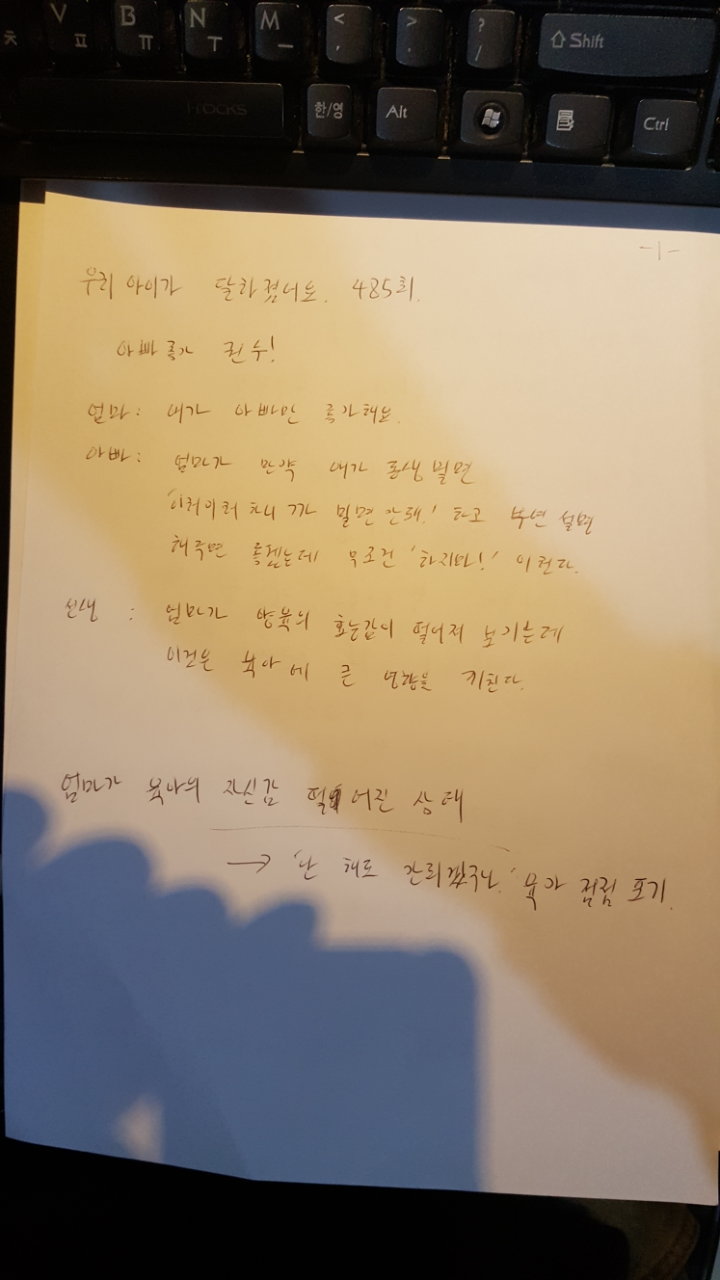 V ㅍ
B ㅠ
N ㅜ
M ㅡ
< ,
> .
? /
Shift
ㅊ
i-rocks
한/영
Alt
Ctrl
-1-
우리 아이가 달라졌어요. 485회.
아빠 륵가 편수!
엄마: 애가 아빠만 륵가해요.
아빠: 엄마가 만약 애가 동생 밀면
'이러이러 하니까 밀면 안돼!' 라고 부연 설명
해주면 좋겠는데 무조건 '하지마!' 이런다.
선생 : 엄마가 양육의 효능감이 떨어져 보기는데
이것은 육아에 큰 영향을 끼친다.
엄마가 육아의 자신감 떨어진 상태
→ '난 해도 안되겠구나.' 육아 점점 포기.